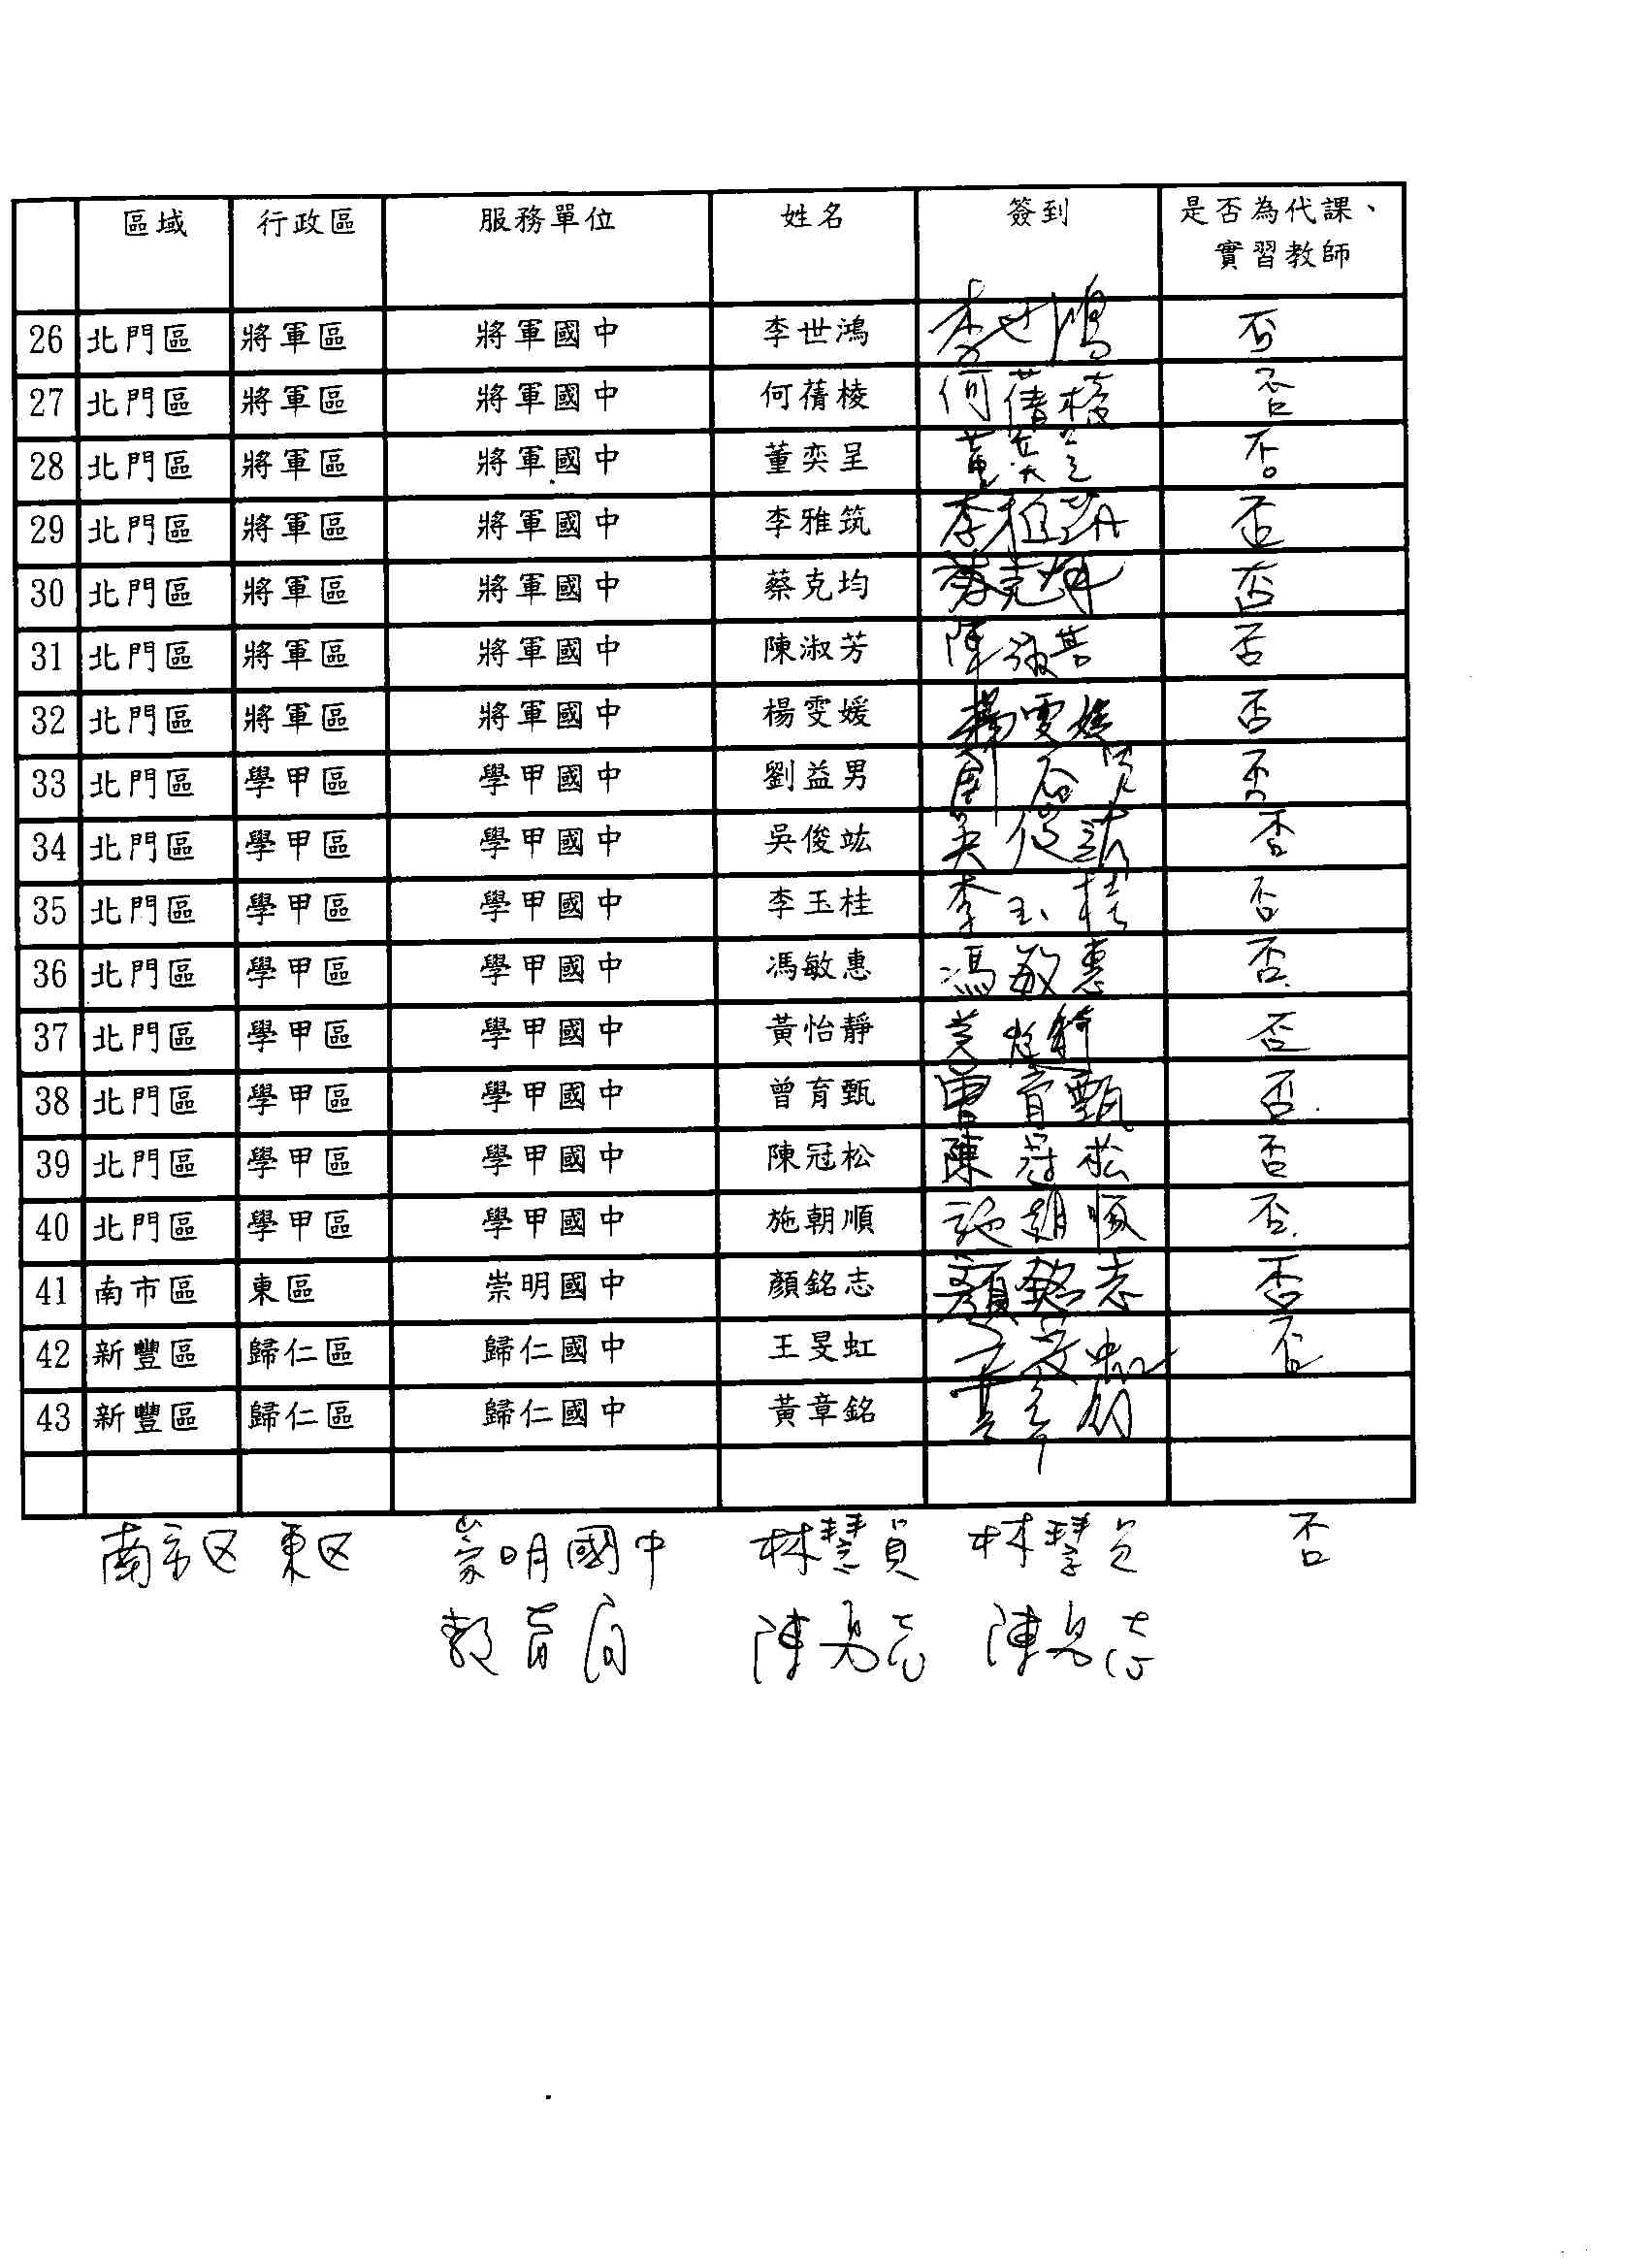 區域 行政區 服務單位 姓名 簽到 是否為代課、
實習教師
26 北門區 將軍區 將軍國中 李世鴻 李世鴻 否
27 北門區 將軍區 將軍國中 何蒨棱 何蒨棱 否
28 北門區 將軍區 將軍國中 董奕呈 董奕呈 否
29 北門區 將軍區 將軍國中 李雅筑 李雅筑 否
30 北門區 將軍區 將軍國中 蔡克均 蔡克均 否
31 北門區 將軍區 將軍國中 陳淑芳 陳淑芳 否
32 北門區 將軍區 將軍國中 楊雯媛 楊雯媛 否
33 北門區 學甲區 學甲國中 劉益男 劉益男 否
34 北門區 學甲區 學甲國中 吳俊竑 吳俊竑 否
35 北門區 學甲區 學甲國中 李玉桂 李玉桂 否
36 北門區 學甲區 學甲國中 馮敏惠 馮敏惠 否
37 北門區 學甲區 學甲國中 黃怡靜 黃怡靜 否
38 北門區 學甲區 學甲國中 曾育甄 曾育甄 否
39 北門區 學甲區 學甲國中 陳冠松 陳冠松 否
40 北門區 學甲區 學甲國中 施朝順 施朝順 否
41 南市區 東區 崇明國中 顏銘志 顏銘志 否
42 新豐區 歸仁區 歸仁國中 王旻虹 王旻虹 否
43 新豐區 歸仁區 歸仁國中 黃章銘 黃章銘
南市区 東区 崇明國中 林慧員 林慧員 否
教育局 陳易志 陳易志